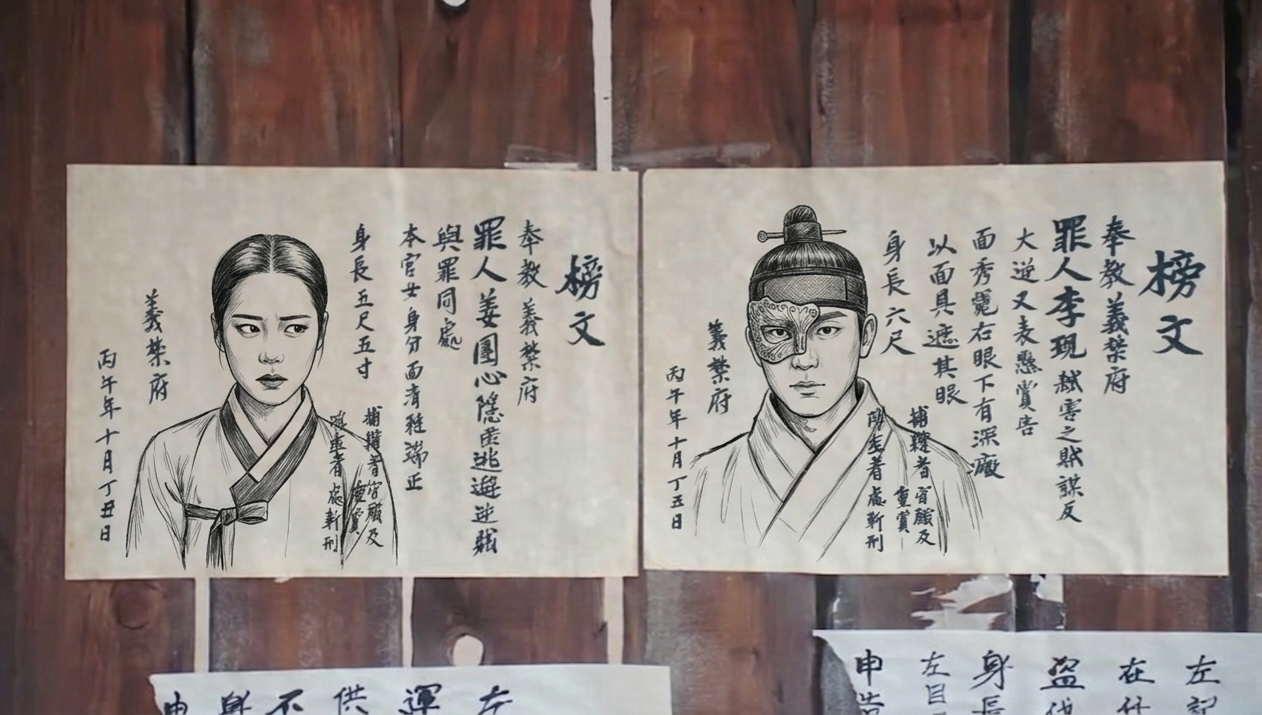 榜文
奉教義禁府
罪人李現弑害之賊謀反
大逆又表懸賞告
面秀麗右眼下有深廠
以面具遮其眼
身長六尺
捕獲者官職及
重賞
隱匿者處斬刑
義禁府
丙午年十月丁丑日
榜文
奉教義禁府
罪人姜團心隱匿逃避逆賊
與罪同處
本官女身分面者雅端正
身長五尺五寸
捕獲者官職及
重賞
隱匿者處斬刑
義禁府
丙午年十月丁丑日
左記
在
盜
身長
左目
申告
左
運
供
不
身
申